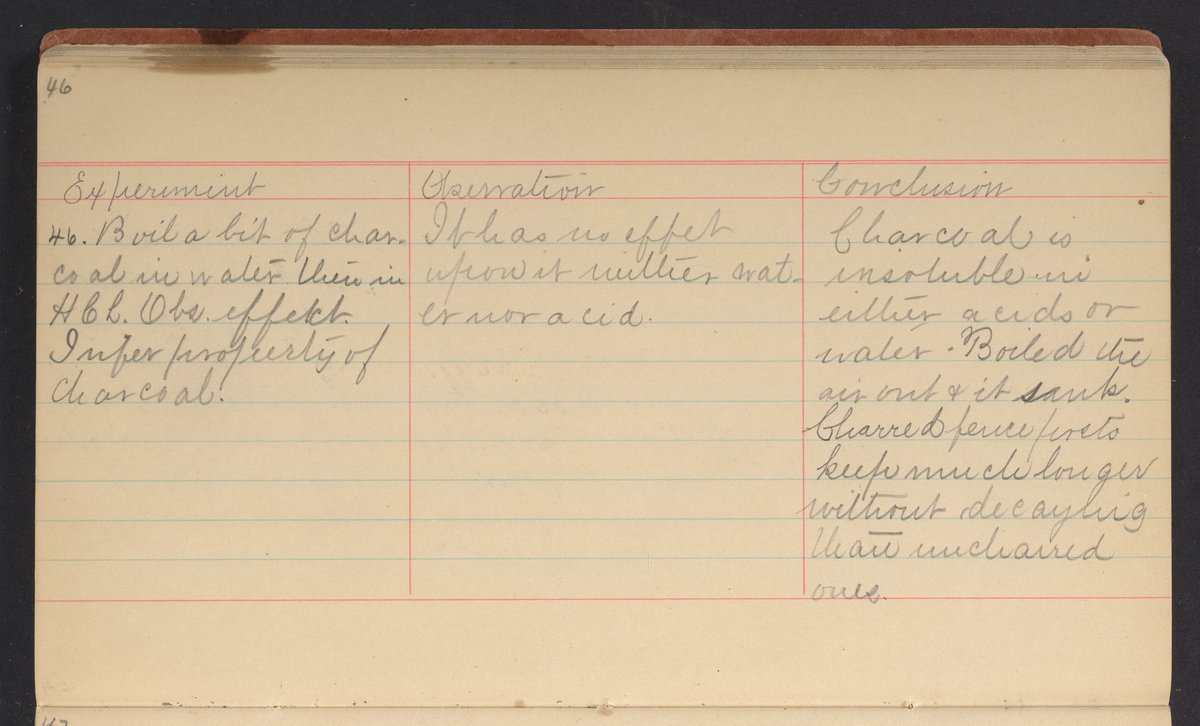 46
Experiment
46. Boil a bit of char-
coal in water then in
HCl. Obs. effekt.
Infer property of
Charcoal.
Obserration
It has no effet
upon it neither wat-
er nor acid.
Conclusion
Charcoal is
insoluble in
either acids or
water. Boiled the
air out & it sank.
Charred fence posts
keep much longer
without decaying
than uncharred
ones.
47